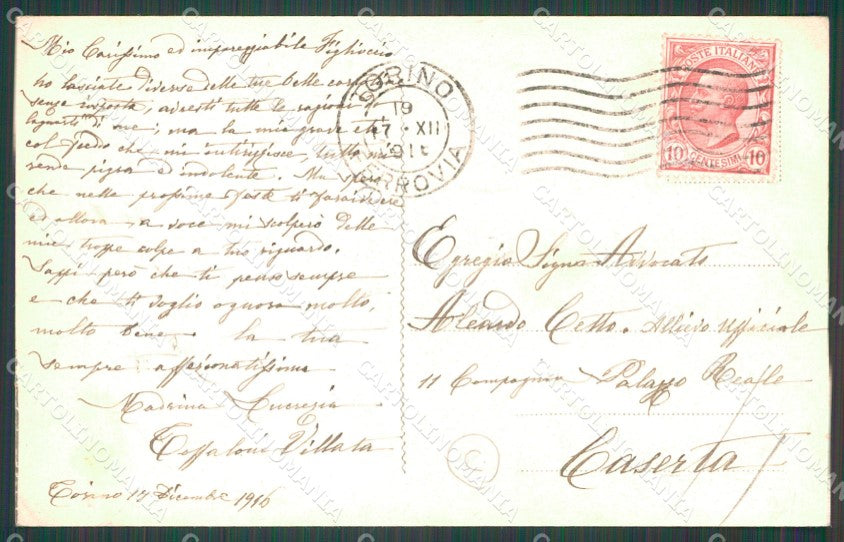 Mio Carissimo ed impareggiabile Figlioccio
ho lasciate diverse delle tue belle
senza risposta, avresti tutte le ragioni di
di me; ma la mia grave età
col freddo che mi intirizzisce, tutta mi
rende pigra ed indolente. Ma spero
che nelle prossime feste ti farai vedere
ed allora a voce mi scolperò delle
mie troppe colpe a tuo riguardo.
Sappi però che ti penso sempre
e che ti voglio ognora molto,
molto bene. la tua
sempre affezionatissima
Madrina Lucrezia
Villata
Torino 17 Dicembre 1916
TORINO
19
17 · XII
FERROVIA
POSTE ITALIANE
10 CENTESIMI 10
Egregio Signor Avvocato
Aleardo Cetto. Allievo Ufficiale
11 Compagnia Palazzo Reale
Caserta
C
CARTOLINOMANIA